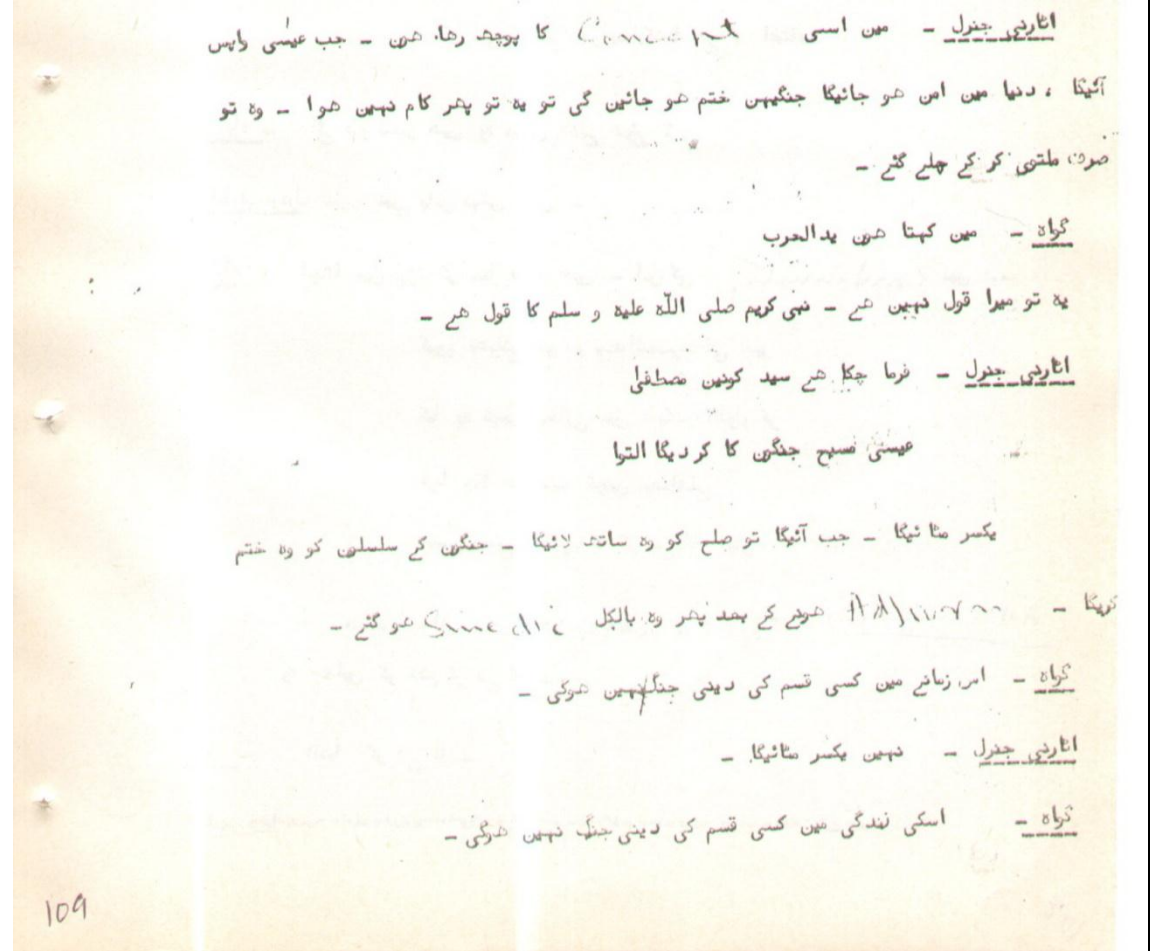 اٹارنی جنرل - مین اسی Concept کا پوچھ رها هون - جب عیسٰی واپس
آئیگا ، دنیا مین امن هو جائیگا جنگیهن ختم هو جائین گی تو یه تو پهر کام نهین هوا - وه تو
صرف ملتوی کر کے چلے گئے -
گواه - مین کهتا هون یدالحرب
یه تو میرا قول نهین هے - نبی کریم صلی اللّه علیه و سلم کا قول هے -
اٹارنی جنرل - فرما چکا هے سید کونین مصطفیٰ
عیسیٰ مسیح جنگون کا کر دیگا التوا
یکسر مٹا ئیگا - جب آئیگا تو صلح کو وه ساتھ لائیگا - جنگون کے سلسلون کو وه ختم
کریگا - Adjourn هونے کے بعد پهر وه بالکل Sine die هو گئے -
گواه - اس زمانے مین کسی قسم کی دینی جنگ نهین هوگی -
اٹارنی جنرل - نهین یکسر مٹائیگا -
گواه - اسکی زندگی مین کسی قسم کی دینی جنگ نهین هوگی -
109